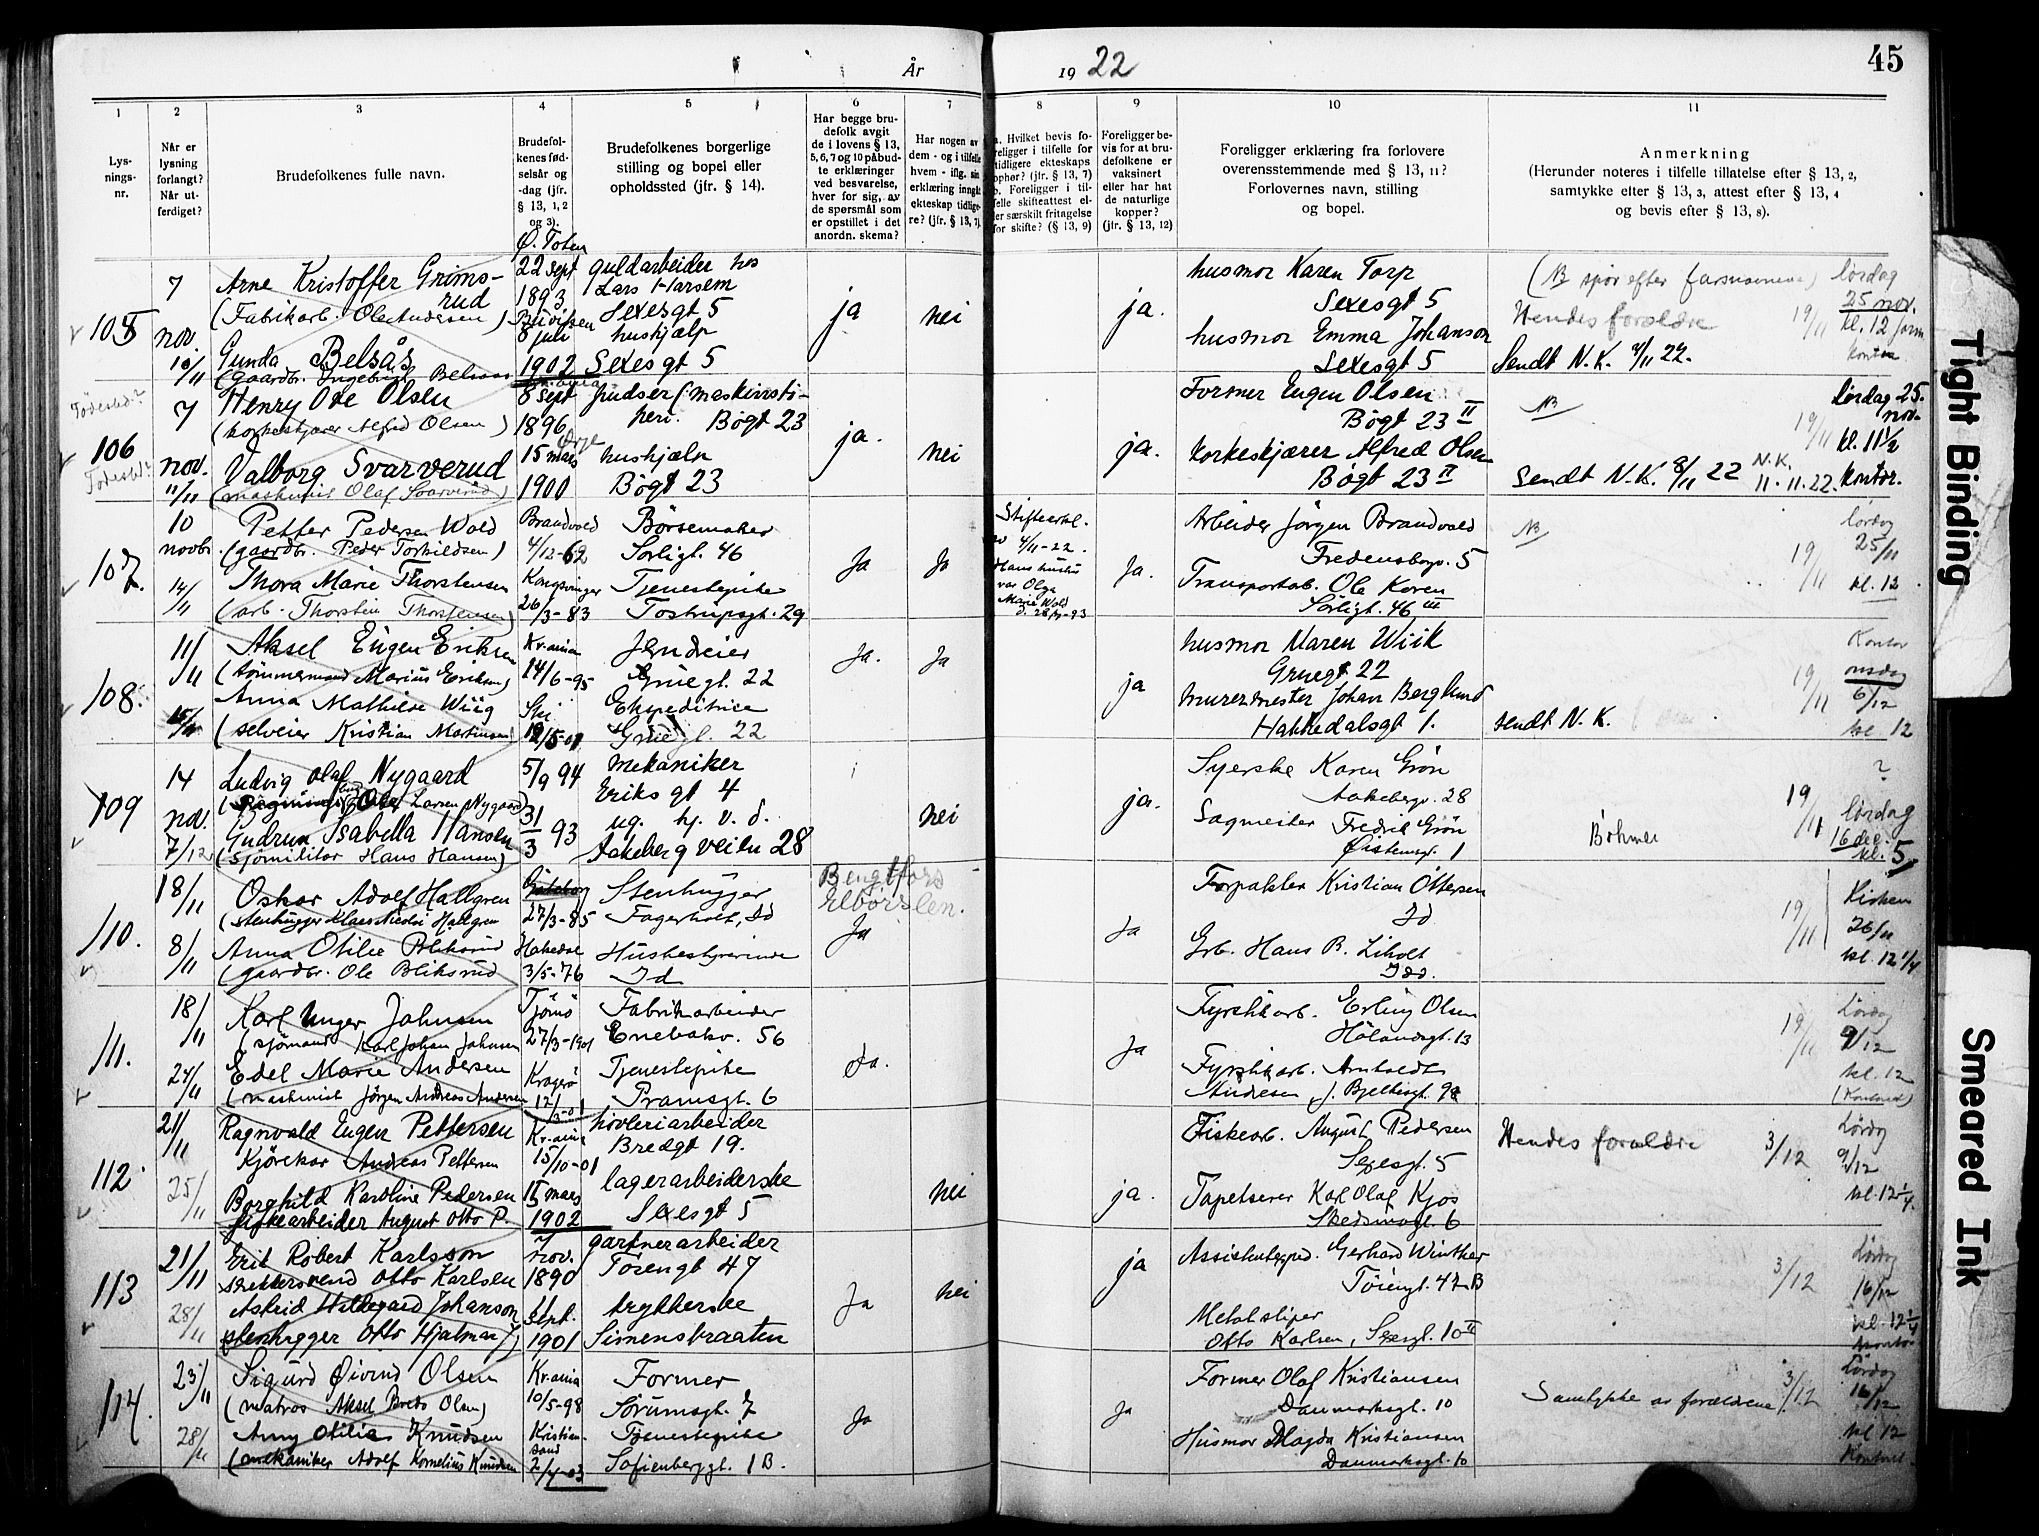 År
19 22
45
1
2
3
4
5
6
7
8
9
10
11
Lys-
nings-
nr.
Når er
lysning
forlangt?
Når ut-
ferdiget?
Brudefolkenes fulle navn.
Brudefol-
kenes fød-
selsår og
-dag (jfr.
§ 13, 1, 2
og 3).
Brudefolkenes borgerlige
stilling og bopel eller
opholdssted (jfr. § 14).
Har begge bru-
defolk avgit
de i lovens § 13,
5, 6, 7 og 10 påbud-
te erklæringer
ved besvarelse,
hver for sig, av
de spørsmål som
er opstillet i det
anordn. skema?
Har nogen av
dem - og i tilfelle
hvem - iflg. sin
erklæring inngåt
ekteskap tidlige-
re? (jfr. § 13, 7)
a. Hvilket bevis fo-
religger i tilfelle for
tidligere ekteskaps
ophør? (jfr. § 13, 7)
b. Foreligger i til-
felle skifteattest el-
ler særskilt fritagelse
for skifte? (§ 13, 9)
Foreligger be-
vis for at bru-
defolkene er
vaksinert
eller har hat
de naturlige
kopper?
(jfr. § 13, 12)
Foreligger erklæring fra forlovere
overensstemmende med § 13, 11?
Forlovernes navn, stilling
og bopel.
Anmerkning
(Herunder noteres i tilfelle tillatelse efter § 13, 2,
samtykke efter § 13, 3, attest efter § 13, 4
og bevis efter § 13, 8).
105
7
nov.
10/11
Arne Kristoffer Grims-
rud
(Fabrikarb. Ole Andersen)
Gunda Belsås
(gaardbr. Ingebrigt Belsaas
Ø. Toten
22 sept
1893
8 juli
1902
guldarbeider hos
Lars Larsen
Sexesgt 5
hushjælp
Sexesgt 5
ja
nei
ja.
husmor Karen Torp
Sexesgt 5
husmor Emma Johanson
Sexesgt 5
(NB spør efter farsnavnene)
Hendes forældre
Sendt N.K. 9/11 22.
19/11
lørdag
25 nov.
kl. 12 form
kontor
Fødested?
106
Fødested?
7
nov.
11/11
Henry Ove Olsen
(korkeskjærer Alfred Olsen)
Valborg Svarverud
(maskinist Olaf Svarverud)
8 sept
1896
Ørje
15 mars
1900
pudser (maskinsti-
heri. Bøgt 23
hushjælp
Bøgt 23
ja.
nei
ja.
Former Eugen Olsen
Bøgt 23 II
Korkeskjærer Alfred Olsen
Bøgt 23 II
NB
Sendt N.K. 8/11 22
N.K.
11.11.22.
19/11
Lørdag 25.
nov.
kl. 11½
kontor.
107.
10
novbr.
14/11
Petter Pedersen Wold
(gaardbr. Peder Torkildsen)
Thora Marie Thorstensen
(arb. Thorstein Thorstensen)
Brandvold
4/12-62
Kongsvinger
26/3-83
Børsemaker
Sørligt. 46
Tjenestepike
Tostrupsgt. 29
Ja
Ja
Skifteerkl.
4/11-22.
Hans hustru
var Olga
Marie Wold
Ja.
Arbeider Jørgen Brandvold
Fredensborgv. 5
Transportarb. Ole Koren
Sørligt. 46 III
NB
19/11
lørdag
25/11
kl. 12
108.
11/11
15/11
Aksel Eugen Eriksen
(tømmermand Marius Eriksen)
Anna Mathilde Wiig
(selveier Kristian Martinsen)
Kr.ania
14/6-95
Ski
19/5-01
Jgudreier
Gruegt. 22
Ekspeditrice
Gruegt. 22
Ja.
Ja
ja
husmor Maren Wiik
Gruegt 22
murermester Johan Berglund
Hakkedalsgt 1.
sendt N.K.
19/11
Kontor
onsdag
6/12
kl 12
109
14
nov.
7/12
Ludvig Olaf Nygaard
Larsen Nygaard)
Gudrun Isabella Hansen
(sjømilitær Hans Hansen)
5/9 94
31/3 93
mekaniker
Eriks gt 4
ug. hj. v. d.
Aakeberg veien 28
nei
ja.
Syerske Karen Grøn
Aakebergv. 28
Sagmester Fredrik Grøn
Øistensgt. 1
Bøhmer
19/11
?
lørdag
16 des.
kl. 5
110.
18/11
8/11
Oskar Adolf Hallgren
(stenhugger Klaes Nicolai Hallgren
Anna Otilie Bliksrud
(gaardbr. Ole Bliksrud
Gøteborg
27/3-85
Hakedal
3/5-76
Stenhugger
Fagerholt, Id
Husbestyrerinde
Id
Bengtfors
Elborslen.
Ja
Ja
Forpakter Kristian Ottersen
Id
Grb. Hans B. Liholt
Idd.
19/11
Kirken
26/11
kl. 12 1/4
111.
18/11
24/11
Karl Unger Johnsen
(sjømand Karl Johan Johnsen
Edel Marie Andersen
(maskinist Jørgen Andreas Andersen
Tjømø
27/3-1901
Kragerø
12/3-01
Fabrikarbeider
Enebakv. 56
Tjenestepike
Pramsgt. 6
Ja.
Ja
Fyrstikarb. Erling Olsen
Hölandsgt. 13
Fyrstikarb. Arnholdt
Andresen, J. Bjelkesgt. 98
19/11
Lørdag
9/12
kl. 12
(Kontoret)
112
21/11
25/11
Ragnvald Eugen Pettersen
Kjørekar Andreas Pettersen
Borghild Karoline Pedersen
fiskearbeider August Otto P.
Kr.ania
15/10-01
15 mars
1902
høvleriarbeider
Bredgt 19.
lagerarbeiderske
Sexesgt 5
nei
ja.
Fiskearb. August Pedersen
Sexesgt. 5
Tapetserer Karl Olaf Kjos
Skedsmogt. 6
Hendes forældre
3/12
Lørdag
9/12
kl. 12 1/4.
113
21/11
28/11
Erik Robert Karlsson
skræddersvend Otto Karlsen
Astrid Hildegard Johanson
stenhugger Otto Hjalmar J)
7
nov.
1890
11
sept.
1901
gartnerarbeider
Tøiengt 47
trykkerske
Simensbraaten
Ja
nei
ja
Gerhard Winther
Tøiengt. 47B
Metalsliper
Otto Karlsen, Sexesgt. 10 II
3/12
Lørdag
16/12
kl. 12 1/4
kontor
114.
23/11
28/11
Sigurd Øivind Olsen
(matros Aksel Bredo Olsen)
Anny Otilia Knudsen
(mekaniker Adolf Kornelius Knudsen
Kr.ania
10/5-98
Kristian-
sand
2/4-03
Former
Sørumsgt. 7
Tjenestepike
Sofienberggt. 1B.
Ja
Ja
Former Olaf Kristiansen
Danmarksgt. 10
Husmor Magda Kristiansen
Danmarksgt. 10
Samtykke av forældrene
3/12
Lørdag
16/12
kl 12
Kontoret.
Tight Binding
Smeared Ink